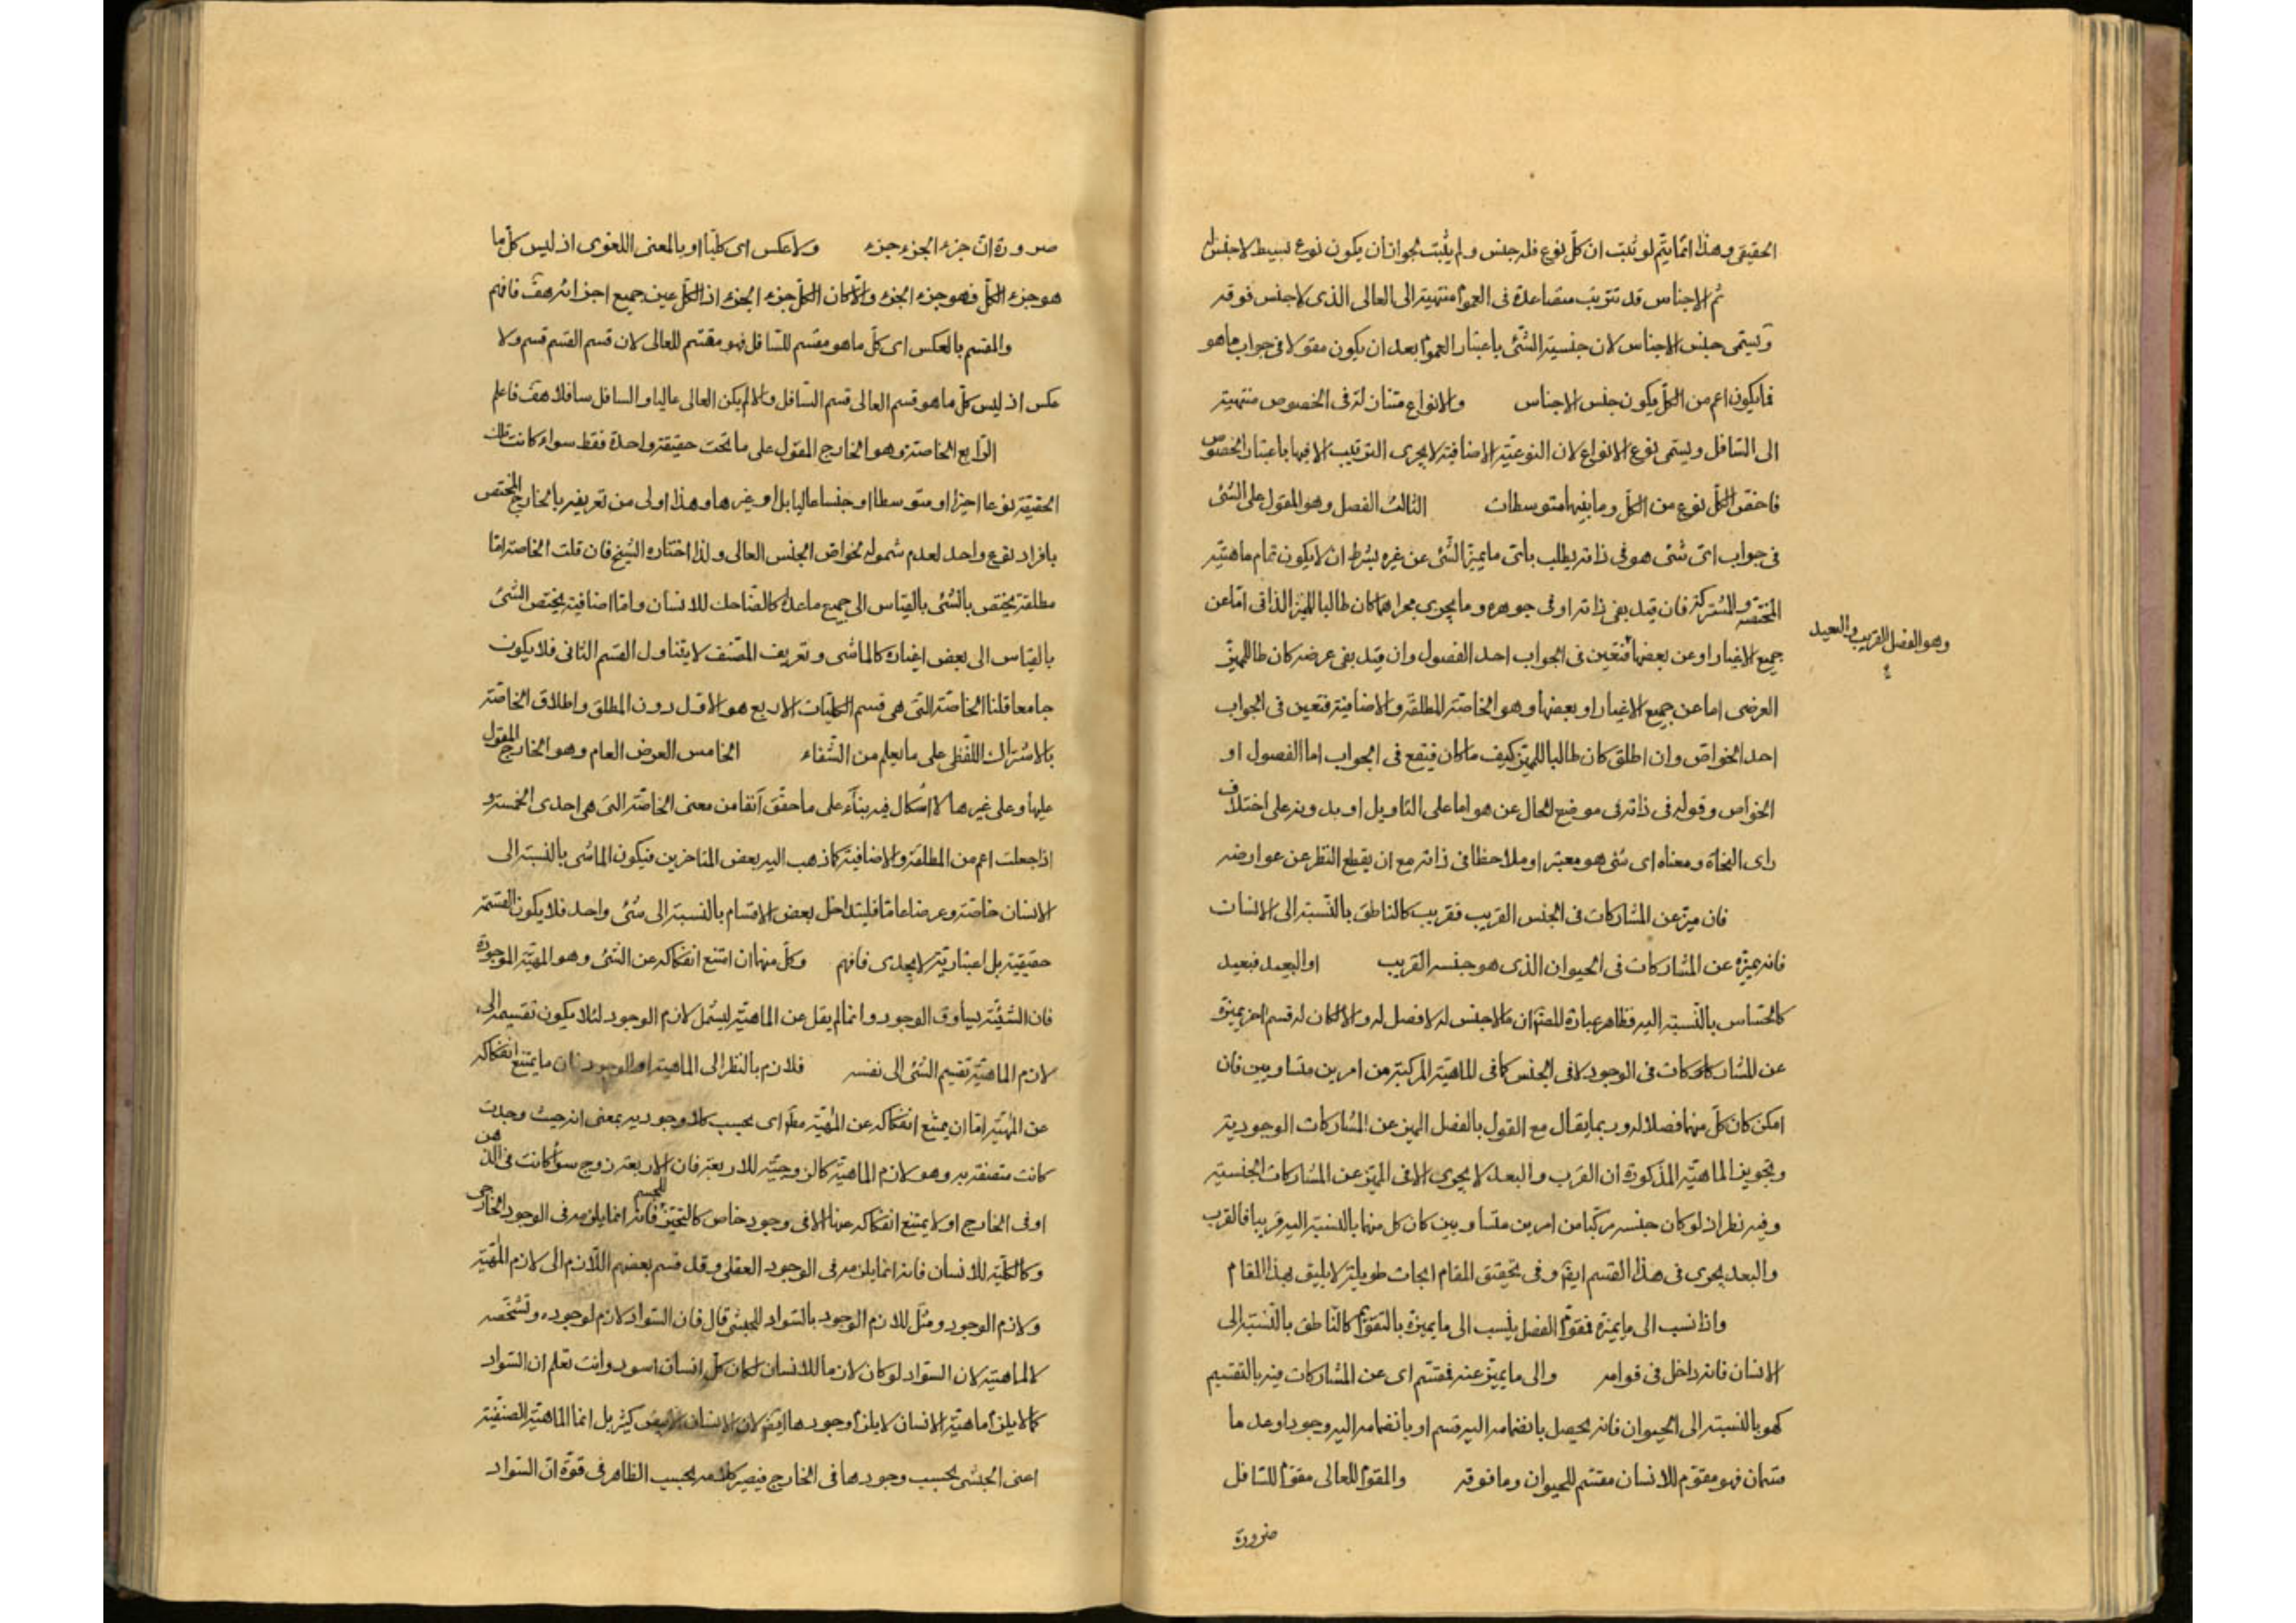 الحقيقى وهذا انما يتم لو ثبت ان كل نوع فله جنس ولم يثبت لجواز ان يكون نوع بسيط لا جنس له
ثم الاجناس قد تترتب متصاعدة فى العموم منتهية الى العالى الذى لا جنس فوقه
ويسمى جنس الاجناس لان جنسية الشئ باعتبار العموم بعد ان يكون مقولا فى جواب ما هو
فما يكون اعم من الكل يكون جنس الاجناس والانواع متنازلة فى الخصوص منتهية
الى السافل ويسمى نوع الانواع لان النوعية الاضافية لا يجرى الترتيب الا فيها باعتبار الخصوص
فاخص الكل نوع من الكل وما بينهما متوسطات الثالث الفصل وهو المقول على الشئ
فى جواب اى شئ هو فى ذاته يطلب باى ما يميز الشئ عن غيره بشرط ان لا يكون تمام ماهيته
المختصة والمشتركة فان قيد بفى ذاته او فى جوهره وما يجرى مجراهما كان طالبا للميز الذاتى اما عن
وهو الفصل القريب والبعيد
جميع الاغيار او عن بعضها فتعين فى الجواب احد الفصول وان قيد بفى عرضه كان طالبا للميز
العرضى اما عن جميع الاغيار او بعضها وهو الخاصة المطلقة والاضافية فتعين فى الجواب
احد الخواص وان اطلق كان طالبا للميز كيف ما كان فيقع فى الجواب اما الفصول او
الخواص وقوله فى ذاته فى موضع الحال عن هو اما على التاويل او بدونه على اختلاف
راى النحاة ومعناه اى شئ هو معتبرا وملاحظا فى ذاته مع ان يقطع النظر عن عوارضه
فان ميز عن المشاركات فى الجنس القريب فقريب كالناطق بالنسبة الى الانسان
فانه يميزه عن المشاركات فى الحيوان الذى هو جنسه القريب او البعيد فبعيد
كالحساس بالنسبة اليه فظاهر عبارة المصنف ان ما لا جنس له لا فصل له والا لكان له قسم اخر يميزه
عن المشاركات فى الوجود لا فى الجنس كما فى الماهية المركبة من امرين متساويين فان
امكن كان كل منهما فصلا له وربما يقال مع القول بالفصل المميز عن المشاركات الوجودية
وتجويز الماهية المذكورة ان القرب والبعد لا يجرى الا فى المميز عن المشاركات الجنسية
وفيه نظر اذ لو كان جنسه مركبا من امرين متساويين كان كل منهما بالنسبة اليه قريبا فالقرب
والبعد يجرى فى هذا القسم ايضا وفى تحقيق المقام ابحاث طويلة لا يليق بهذا المقام
واذا نسب الى ما يميزه فمقوم الفصل ينسب الى ما يميزه بالتقويم كالناطق بالنسبة الى
الانسان فانه داخل فى قوامه والى ما يميز عنه فمقسم اى عن المشاركات فيه بالتقسيم
كهو بالنسبة الى الحيوان فانه يحصل بانضمامه اليه قسم او بانضمامه اليه وجودا وعدما
قسمان فهو مقوم للانسان مقسم للحيوان وما فوقه والمقوم للعالى مقوم للسافل
ضرورة
ضرورة ان جزء الجزء جزء ولا عكس اى كليا او بالمعنى اللغوى اذ ليس كل ما
هو جزء الكل فهو جزء الجزء والا كان الكل جزء الجزء اذ الكل عين جميع اجزائه هف فافهم
والمقسم بالعكس اى كل ما هو مقسم للسافل فهو مقسم للعالى لان قسم القسم قسم ولا
عكس اذ ليس كل ما هو قسم العالى قسم السافل والا لم يكن العالى عاليا والسافل سافلا هف فاعلم
الرابع الخاصة وهو الخارج المقول على ما تحت حقيقة واحدة فقط سواء كانت تلك
الحقيقة نوعا اخيرا او متوسطا او جنسا عاليا بل او غيرها وهذا اولى من تعريفه بالخارج المختص
بافراد نوع واحد لعدم شموله لخواص الجنس العالى ولذا اختاره الشيخ فان قلت الخاصة اما
مطلقة يختص بالشئ بالقياس الى جميع ما عداه كالضاحك للانسان واما اضافية يختص الشئ
بالقياس الى بعض اغياره كالماشى وتعريف المصنف لا يتناول القسم الثانى فلا يكون
جامعا قلنا الخاصة التى هى قسم الكليات الاربع هو الاول دون المطلق واطلاق الخاصة
بالاشتراك اللفظى على ما يعلم من الشفاء الخامس العرض العام وهو الخارج المقول
عليها وعلى غيرها لا اشكال فيه بناء على ما حقق آنفا من معنى الخاصة التى هى احدى الخمسة و
اذا جعلت اعم من المطلقة والاضافية كما ذهب اليه بعض المتاخرين فيكون الماشى بالنسبة الى
الانسان خاصة وعرضا عاما فليتداخل بعض الاقسام بالنسبة الى شئ واحد فلا يكون القسمة
حقيقية بل اعتبارية لا يجدى فافهم وكل منهما ان امتنع انفكاكه عن الشئ وهو المهية الموجودة
فان الشيئية يساوق الوجود وانما لم يقل عن الماهية ليشمل لازم الوجود لئلا يكون تقسيمه الى
لازم الماهية تقسيم الشئ الى نفسه فلازم بالنظر الى الماهية او الوجود فان ما يمتنع انفكاكه
عن المهية اما ان يمتنع انفكاكه عن المهية مط اى بحسب كلا وجوديه بمعنى انه حيث وجدت
كانت متصفة به وهو لازم الماهية كالزوجية للاربعة فان الاربعة زوج سواء كانت فى الذهن
او فى الخارج او لا يمتنع انفكاكه عنها الا فى وجود خاص كالتحيز للجسم فانه انما يلزمه فى الوجود الخارجى
وكالكلية للانسان فانه انما يلزمه فى الوجود العقلى وقد قسم بعضهم اللازم الى لازم المهية
ولازم الوجود ومثل للازم الوجود بالسواد للحبشى قال فان السواد لازم لوجوده وتشخصه
لا لماهيته لان السواد لو كان لازما للانسان لكان كل انسان اسود وانت تعلم ان السواد
كما لا يلزم ماهية الانسان لا يلزم وجودها ايضا لان الانسان الابيض كثير بل انما الماهية الصنفية
اعنى الحبشى بحسب وجودها فى الخارج فيصير كلامه بحسب الظاهر فى قوة ان السواد